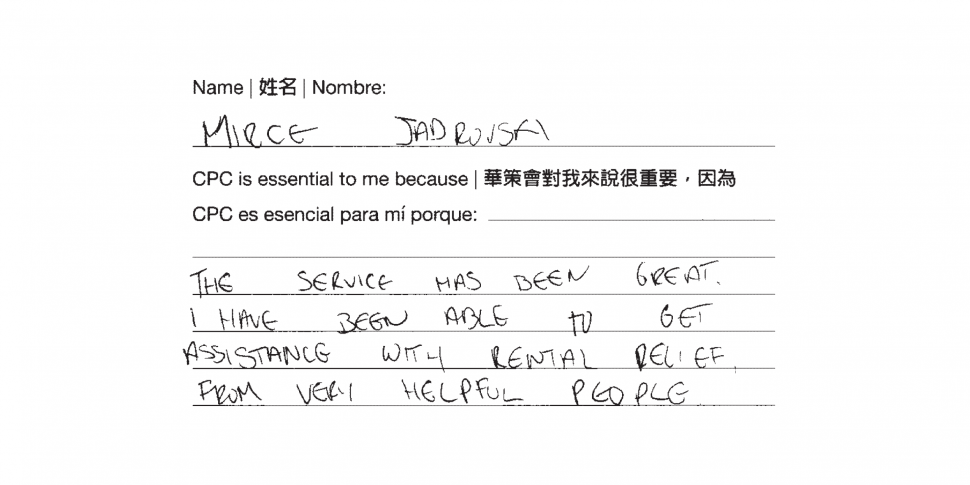 Name | 姓名 | Nombre:
MIRCE JADROVSKI
CPC is essential to me because | 華策會對我來說很重要，因為
CPC es esencial para mí porque:
THE SERVICE HAS BEEN GREAT.
I HAVE BEEN ABLE TO GET
ASSISTANCE WITH RENTAL RELIEF
FROM VERY HELPFUL PEOPLE